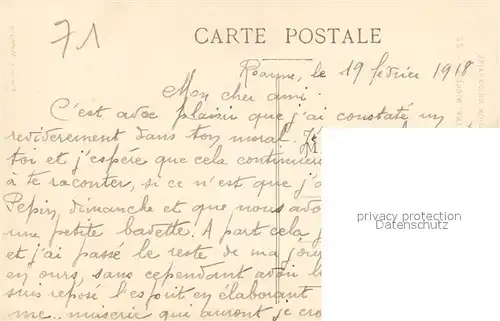 71
CARTE POSTALE
Roanne, le 19 février 1918
Mon cher ami.
C'est avec plaisir que j'ai constaté un
reviderement dans ton moral.
toi et j'espère que cela continuer
à te raconter, si ce n'est que j'a
Pepin, dimanche et que nous avo
une petite bavette. A part cela
et j'ai passé le reste de ma jour
en ours, sans cependant avoir l
suis reposé l'esprit en élaborant
me qui auront je cro
privacy protection
delcampe.net